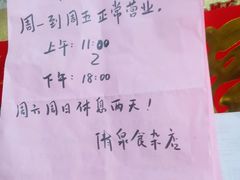 周一到周五正常营业.
上午: 11:00
2
下午: 18:00
周六周日休息两天!
泉食杂店